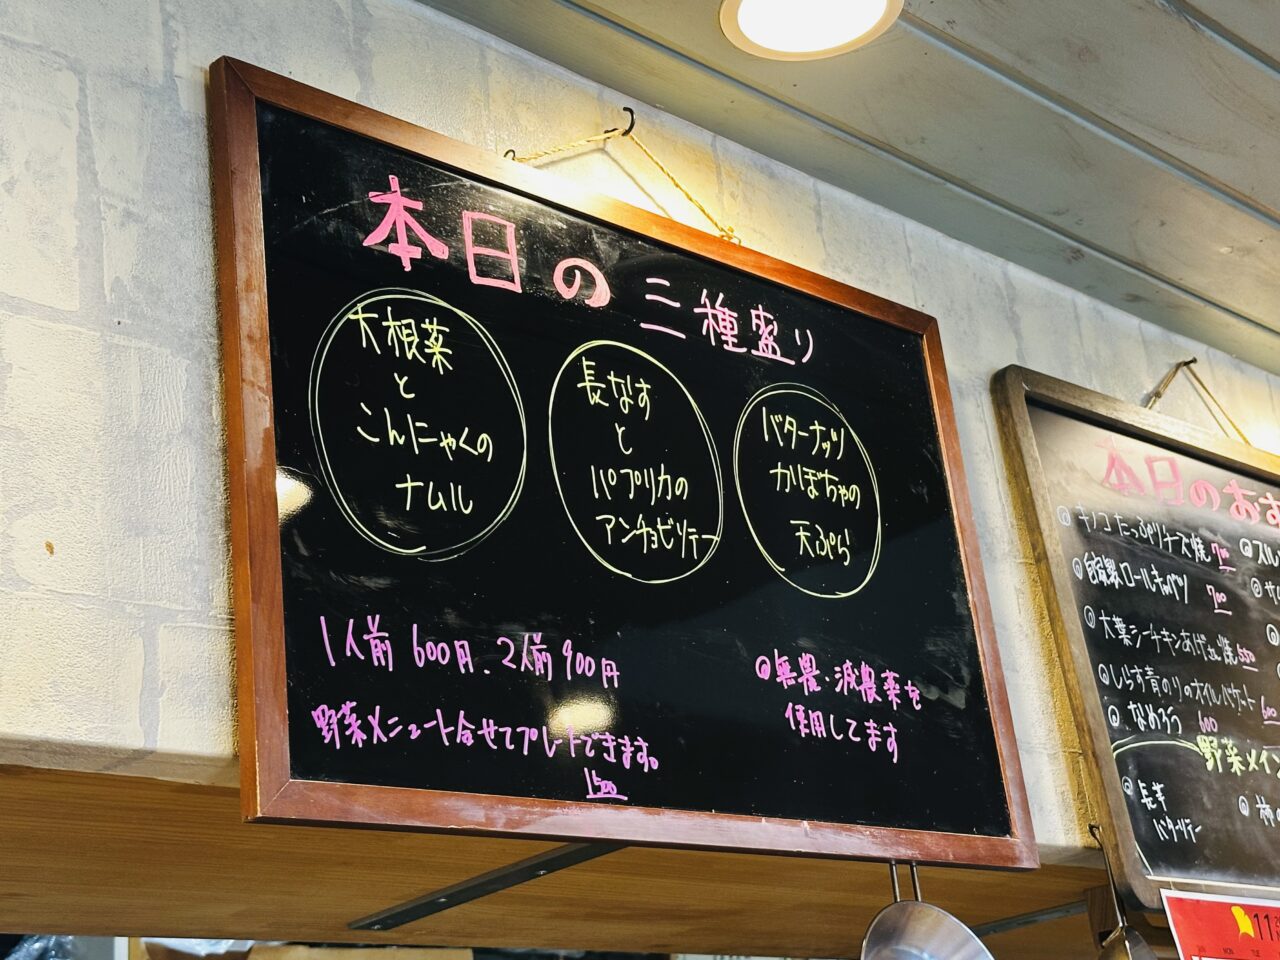 本日の三種盛り
大根菜
と
こんにゃくの
ナムル
長なす
と
パプリカの
アンチョビソテー
バターナッツ
かぼちゃの
天ぷら
1人前 600円、2人前 900円
野菜メニュート合せてプレートできます。
1500
◎無農・減農薬を
使用してます
本日のおす
◎キノコたっぷりチーズ焼 700
◎自家製ロールキャベツ 700
◎大葉シーチキンあげ 焼 550
◎しらす青のりのオイルバケット 600
◎なめろう 600
野菜メイン
◎長芋
バターソテー
11